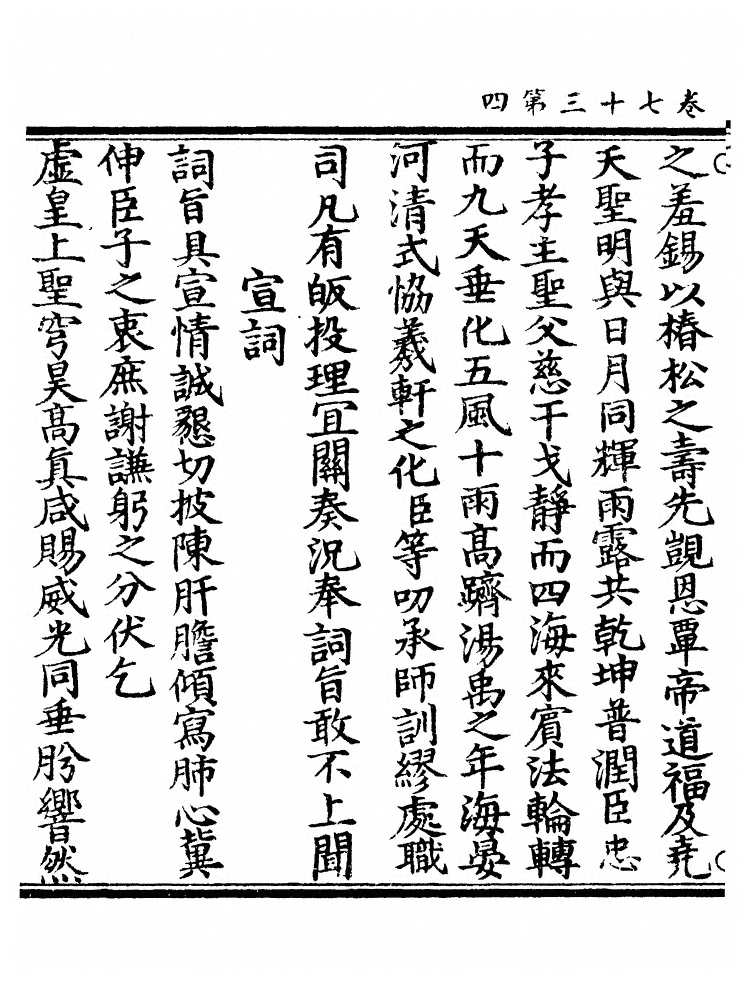 卷七十三第四
之羞錫以椿松之壽先覬恩覃帝道福及堯
天聖明與日月同輝雨露共乾坤普潤臣忠
子孝主聖父慈干戈靜而四海來賓法輪轉
而九天垂化五風十雨高躋湯禹之年海晏
河清式恊羲軒之化臣等叨承師訓繆處職
司凡有皈投理宜關奏況奉詞旨敢不上聞
宣詞
詞旨具宣情誠懇切披陳肝膽傾寫肺心兾
伸臣子之衷庶謝謙躬之分伏乞
虛皇上聖穹昊髙真咸賜威光同垂肹響然